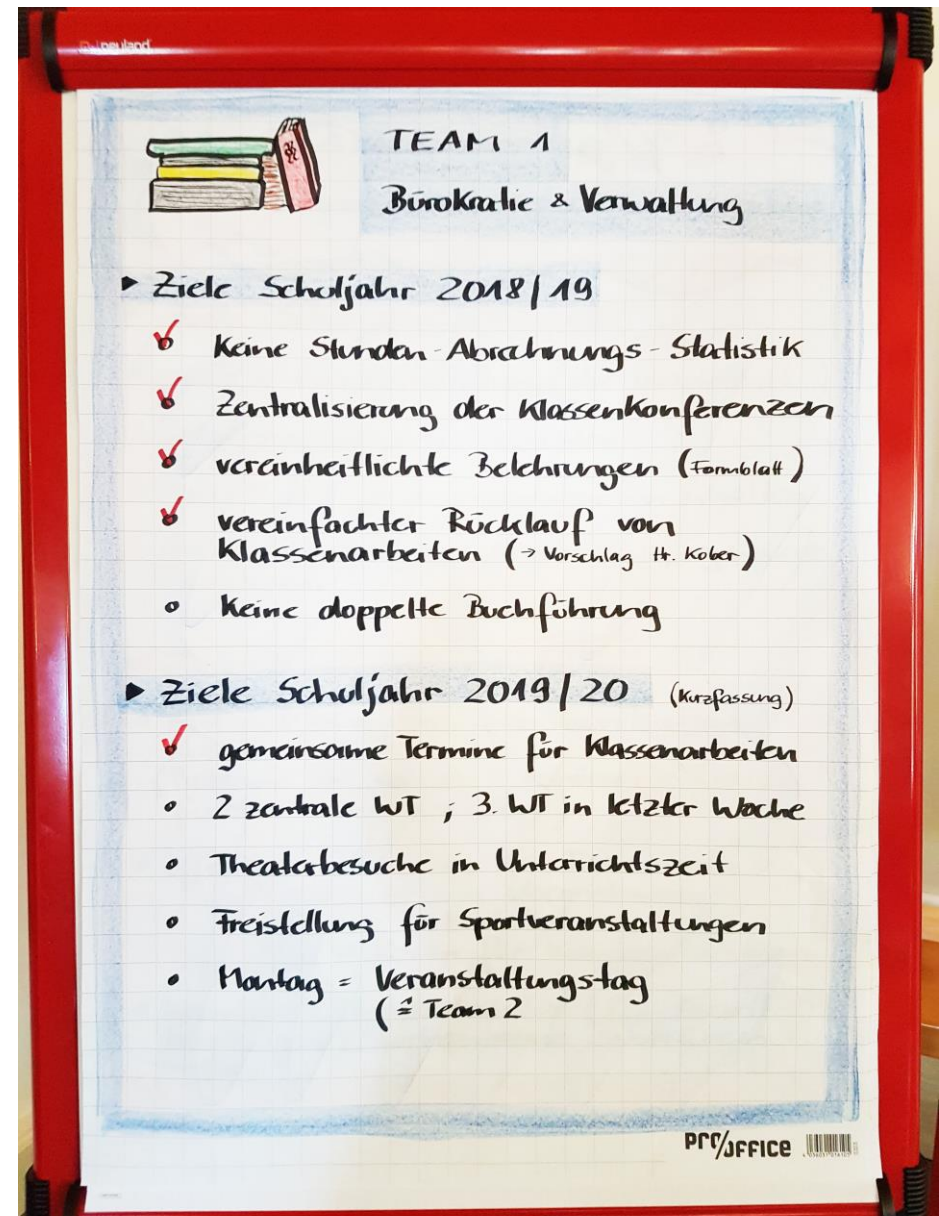 neuland
TEAM 1
Bürokratie & Verwaltung
► Ziele Schuljahr 2018/19
Keine Stunden-Abrechnungs-Statistik
Zentralisierung der Klassenkonferenzen
vereinheitlichte Belehrungen (Formblatt)
vereinfachter Rücklauf von
Klassenarbeiten (→ Vorschlag Hr. Kober)
• Keine doppelte Buchführung
► Ziele Schuljahr 2019/20 (Kurzfassung)
gemeinsame Termine für Klassenarbeiten
• 2 zentrale WT ; 3. WT in letzter Woche
• Theaterbesuche in Unterrichtszeit
• Freistellung für Sportveranstaltungen
• Montag = Veranstaltungstag
(≙ Team 2
PRO/OFFICE